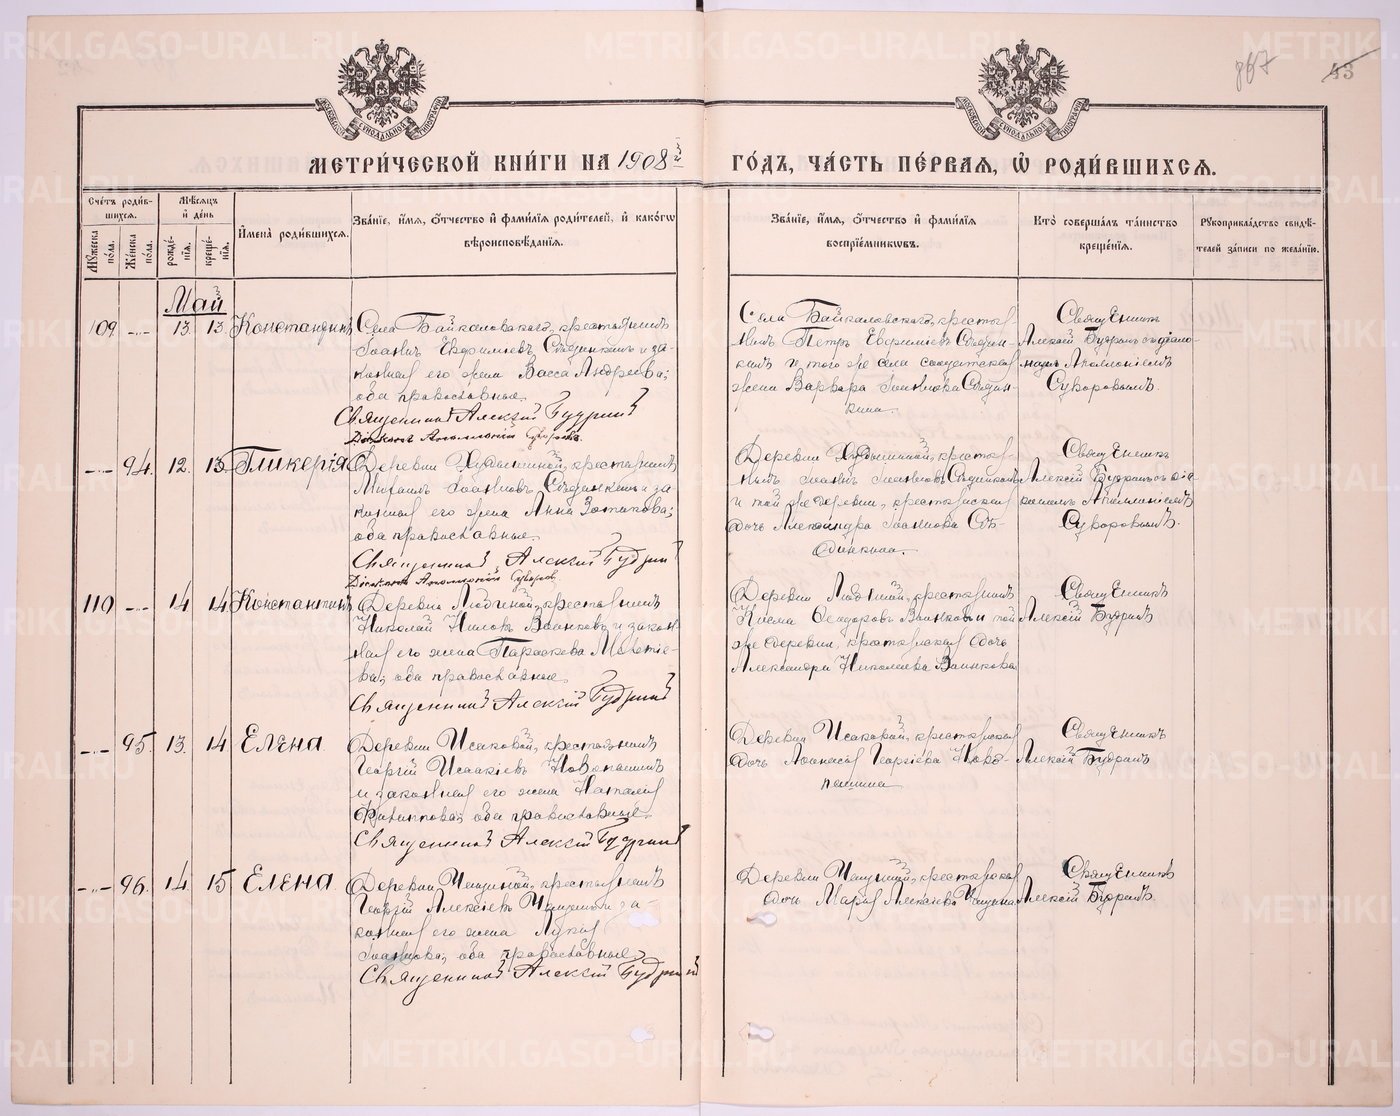 867
43
МЕТРИ́ЧЕСКОЙ КНИ́ГИ НА 1908й ГО́ДЪ, ЧА́СТЬ ПЕ́РВАЯ, Ѡ РОДИ́ВШИХСЯ.
Сче́тъ роди́вшихся.
Му́жеска по́ла.
Же́нска по́ла.
Мѣ́сяцъ и день
рожде́нія.
креще́нія.
Имена̀ роди́вшихся.
Зва́ніе, и́мя, о́тчество и фами́лія роди́телей, и како́гѡ
вѣроисповѣ́данія.
Зва́ніе, и́мя, о́тчество и фами́лія
воспріе́мникѡвъ.
Кто̀ соверша́лъ та́инство
креще́нія.
Рукоприкла́дство свидѣ́-
телей за́писи по жела́нію.
Май
109 -„- 13. 13. Константинъ
Села Байкаловскаго, крестьянинъ
Іоаннъ Евфиміевъ Съединкинъ и за-
конная его жена Васса Андреева;
оба православные.
Священникъ Алексій Будринъ
Діаконъ Аполлоній Суворовъ.
Села Байкаловского, крестья-
нинъ Петръ Евфиміевъ Съедин-
кинъ и того же села солдатская
жена Варвара Іоаннова Съедин-
кина.
Священникъ
Алексій Будринъ съ діако-
номъ Аполлоніемъ
Суворовымъ.
-„- 94. 12. 13. Гликерія
Деревни , крестьянинъ
Михаилъ Іоанновъ Съединкинъ и за-
конная его жена Анна Зотикова;
оба православные.
Священникъ Алексій Будринъ
Діаконъ Аполлоній Суворовъ.
Деревни , крестья-
нинъ Іоаннъ Іоанновъ Съединкинъ
и той же деревни, крестьянская
дочь Александра Іоаннова Съ-
единкина.
Священникъ
Алексій Будринъ съ діа-
кономъ Аполлоніемъ
Суворовымъ.
110 -„- 14 14 Константинъ
Деревни Людиной, крестьянинъ
Николай Ниловъ и закон-
ная его жена Параскева
оба православные.
Священникъ Алексій Будринъ
Деревни Людиной, крестьянинъ
Косма Ѳеодоровъ и той
же деревни, крестьянская дочь
Александра Николаева
Священникъ
Алексій Будринъ
-„- 95. 13. 14. Елена.
Деревни Исаковой, крестьянинъ
Георгій Исаакіевъ Новопашинъ
и законная его жена Наталія
Филиппова; оба православные.
Священникъ Алексій Будринъ
Деревни Исаковой, крестьянская
дочь Аѳанасія Георгіева Ново-
пашина
Священникъ
Алексій Будринъ
-„- 96. 14. 15 Елена.
Деревни Чащиной, крестьянинъ
Георгій Алексіевъ Чащинъ и за-
конная его жена
Іоаннова; оба православные.
Священникъ Алексій Будринъ
Деревни Чащиной, крестьянская
дочь Марія Алексіева Чащина
Священникъ
Алексій Будринъ.
METRIKI.GASO-URAL.RU